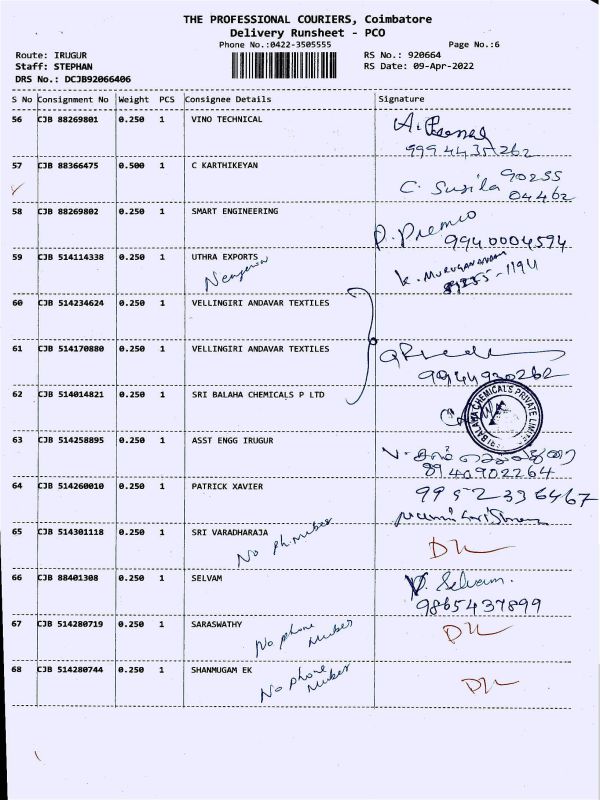 THE PROFESSIONAL COURIERS, Coimbatore
Delivery Runsheet - PCO
Phone No.:0422-3505555 Page No.:6
Route: IRUGUR RS No.: 920664
Staff: STEPHAN RS Date: 09-Apr-2022
DRS No.: DCJB92066406
S No Consignment No Weight PCS Consignee Details Signature
56 CJB 88269801 0.250 1 VINO TECHNICAL
999 4435262
57 CJB 88366475 0.500 1 C KARTHIKEYAN C. Susila 90255
04462
58 CJB 88269802 0.250 1 SMART ENGINEERING P. Premco
9940004594
59 CJB 514114338 0.250 1 UTHRA EXPORTS K. MURUGANANDAM
60 CJB 514234624 0.250 1 VELLINGIRI ANDAVAR TEXTILES
61 CJB 514170880 0.250 1 VELLINGIRI ANDAVAR TEXTILES
9944930262
62 CJB 514014821 0.250 1 SRI BALAHA CHEMICALS P LTD
BALAHA CHEMICALS PRIVATE LIMITED
63 CJB 514258895 0.250 1 ASST ENGG IRUGUR
8940902264
64 CJB 514260010 0.250 1 PATRICK XAVIER 9952336467
65 CJB 514301118 0.250 1 SRI VARADHARAJA
No ph.nuber
DL
66 CJB 88401308 0.250 1 SELVAM P. Selvam.
9865437899
67 CJB 514280719 0.250 1 SARASWATHY
No phone nuber
DL
68 CJB 514280744 0.250 1 SHANMUGAM EK
No phone nuber
DL